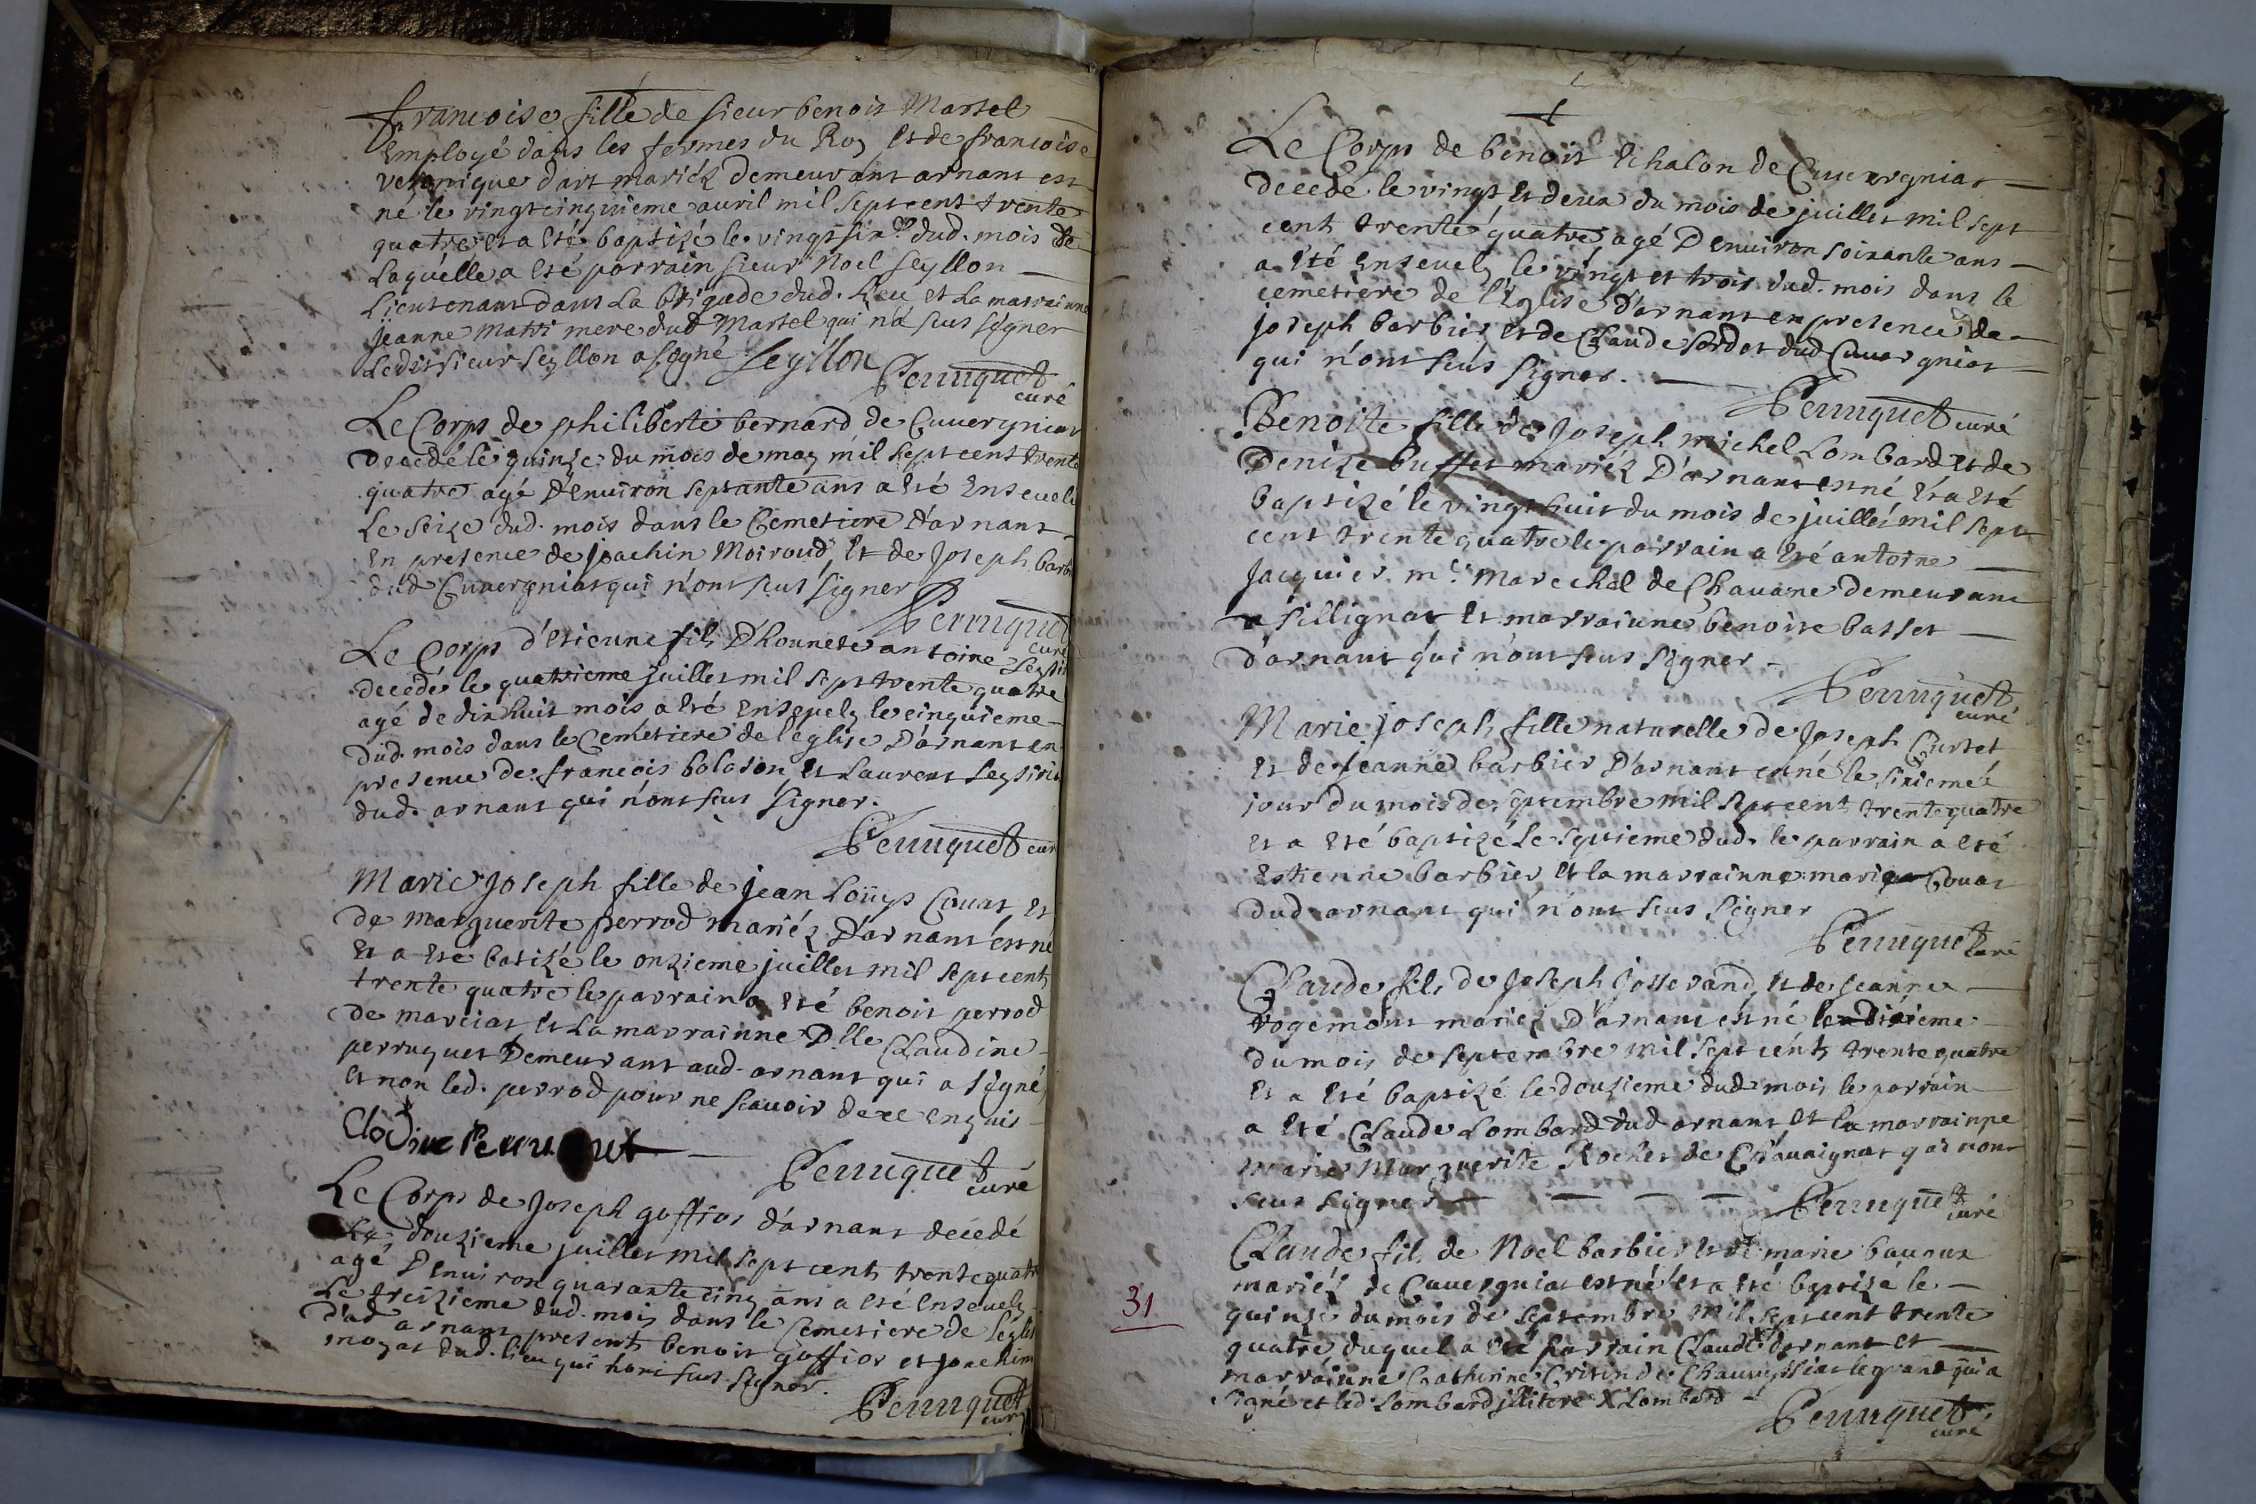 francoise fille de sieur benoit Martel
employé dans les fermes du Roy et de francoise
veronique dart mariéz demeurant arnant est
né le vingtcinquieme auril mil sept cent trente
quatre et a eté baptizé le vingt six.e dud. mois de
Laquelle a eté parrain sieur Noel seyllon
Lieutenant dans La brigade dud. Lieu et La marrainne
jeanne matri mere dud Martel qui n'a sçeus signer
Ledit sieur seyllon a signé. Seyllon
Perruquet
curé
Le Corps de philiberte bernard de Cuuergniat
decedé le quinze du mois de may mil sept cent trente
quatre agé D'enuiron septante ans a eté Enseueli
Le seize dud. mois dans le Cemetiere d'arnant
En presence de joachin Moiroud, et de Joseph barb
dud Cuuergniat qui n'ont sceus signer
Perruquet
curé
Le Corps d'etienne fils D'honnete antoine
decedé le quatrieme juillet mil sept trente quatre
agé de dix huit mois a eté Ensevely le cinquieme
dud. mois dans le Cemetiere de l'eglise D'arnant en
presence de françois bolozon et Laurent
dud. arnant qui n'ont sceus signer.
Perruquet curé
Marie Joseph fille de jean Loüys Couat et
de marguerite perrod mariéz D'arnant est né
et a eté batizé le onzieme juillet mil sept cent
trente quatre le parrain a eté benoit perrod
de marciat, et La marrainne D.lle Claudine
perruquet Demeurant aud. arnant qui a signé
et non led. perrod pour ne scauoir de ce enquis
Clodine Perruquet
Perruquet
curé
Le Corps de Joseph goffior d'arnant décédé
Le douzieme juillet mil sept cent trente quatre
agé D'enuiron quarante cinq ans a eté enseuely
Le treizieme dud. mois dans le Cemetiere de l'eglise
d'ad arnant present benoit goffior et joachim
moyat dud. lieu qui n'ont sceus signer.
Perruquet
curé
Le Corps de benoit Echalon de Cuuergniat
decedé le vingt et deux du mois de juillet mil sept
cent trente quatre agé D'enuiron soixante ans
a eté Enseuely le vingt et trois dud. mois dans le
cemetiere de l'Eglise D'arnant en presence de
joseph barbier et de Claude sordet dud Cuuergniat
qui n'ont sçeus signer.
Perruquet curé
Benoite fille de Joseph michel Lombard et de
Denize buffet mariéz D'arnant est né et a eté
baptizé le vingt huit du mois de juillet mil sept
cent trente quatre le parrain a eté antoine
Jacquier m.e Marechal de Chauane demeurant
a sillignat et marrainne benoite basset
d'arnant qui n'ont sceus signer.
Perruquet
curé
Marie joseph fille naturelle de Joseph Curtet
et de jeanne barbier D'arnant est né le sixieme
jour du mois de septembre mil sept cent trente quatre
et a eté baptizé le septieme dud. le parrain a eté
Estienne barbier et la marrainne marie Couat
dud arnant qui n'ont sceus signer
Perruquet
curé
Claude fils de Joseph josserand et de jeanne
rogemont mariéz D'arnant est né le dixieme
du mois de septembre mil sept cent trente quatre
et a eté baptizé le douzieme dud mois le parrain
a eté Claude Lombard dud arnant et la marrainne
marie Marguerite Rochet de Chauaignat qui n'ont
sceus signer
Perruquet
curé
Claude fils de Noel barbier et de marie bauoux
mariéz de Cuuergniat est né et a eté baptizé le
31
quinze du mois de septembre mil sept cent trente
quatre duquel a eté parrain Claude d'arnant et
marrainne Catherine Critin de Chauuissiat le grand qui a
signé et led. Lombard illiteré X Lombard
Perruquet
curé